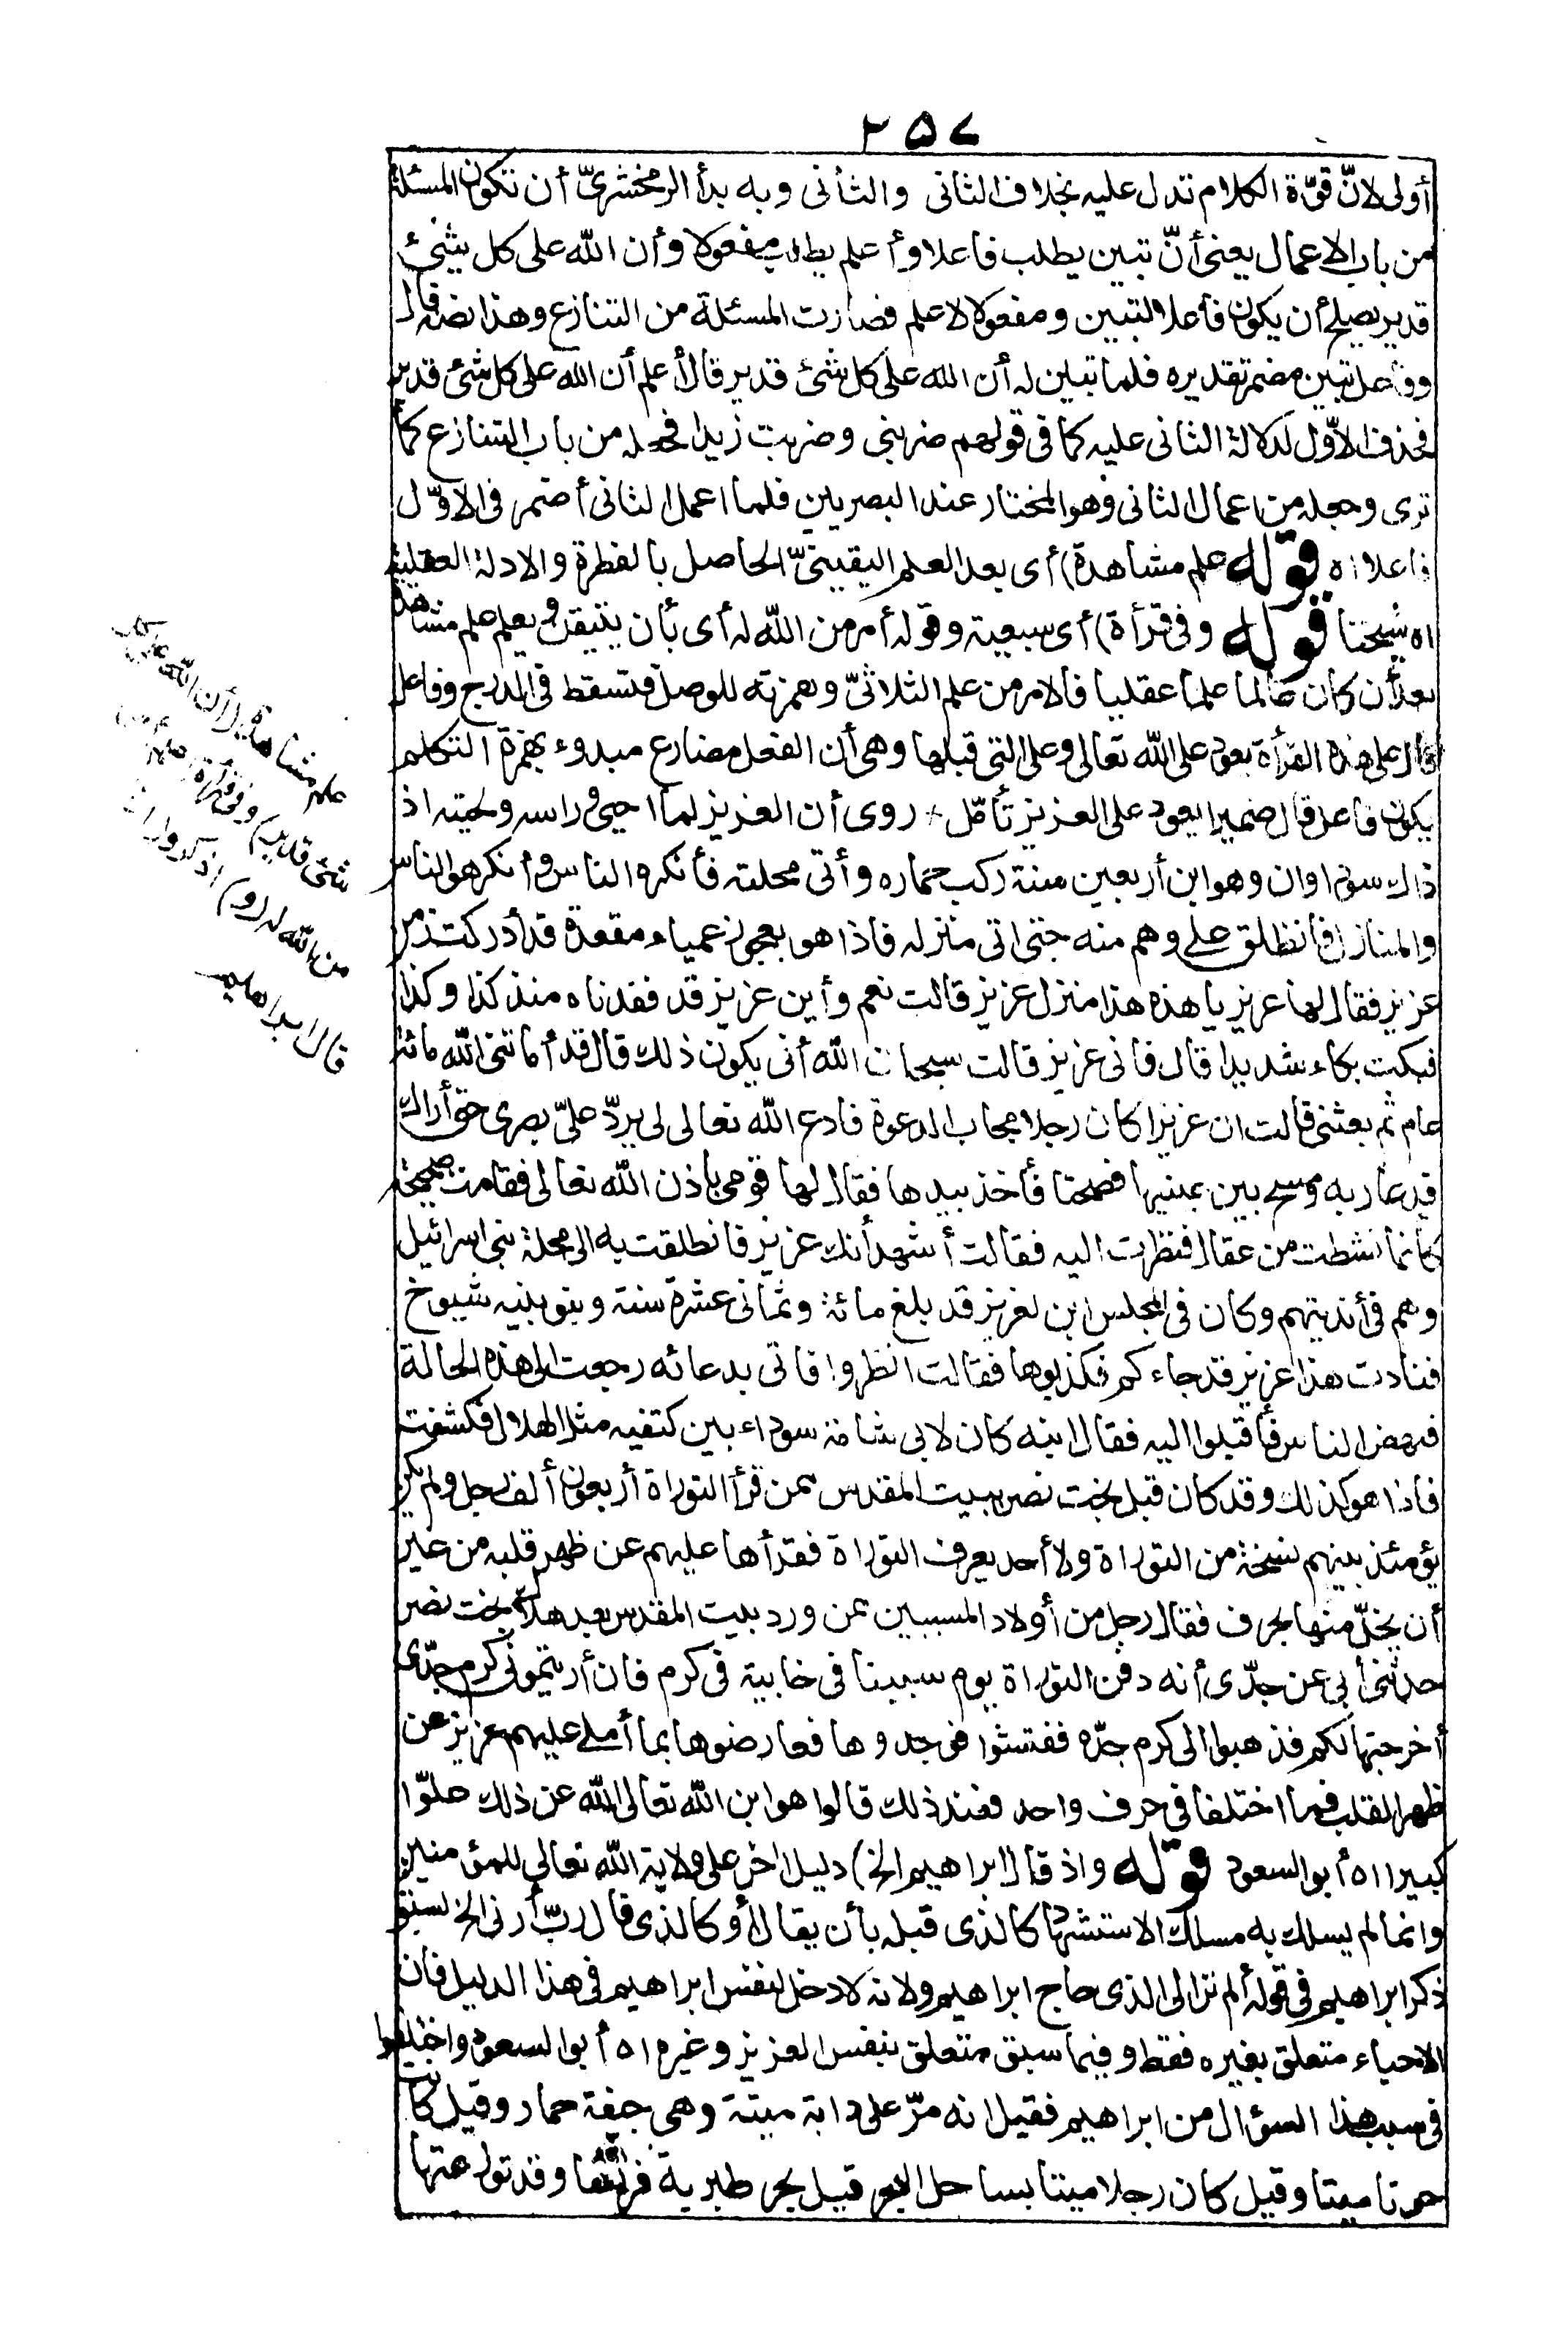 ٢٥٧
أولى لانّ قوّة الكلام تدل عليه بخلاف الثانى والثانى وبه بدأ الزمخشرىّ أن تكون المسئلة
من باب الاعمال يعنى أنّ تبين يطلب فاعلا وأعلم يطلب مفعولا وأن الله على كل شئ
قدير يصلح أن يكون فاعلا لتبين ومفعولا لاعلم فصارت المسئلة من التنازع وهذا نصه قال
وفاعل تبين مضمر تقديره فلما تبين له أن الله على كل شئ قدير قال أعلم أن الله على كل شئ قدير
فحذف الاوّل لدلالة الثانى عليه كما فى قولهم ضربنى وضربت زيدا فجعله من باب التنازع كما
ترى وجعله من اعمال الثانى وهو المختار عند البصريين فلما اعمل الثانى أضمر فى الاوّل
فاعلا اه قوله علم مشاهدة) أى بعد العلم اليقينىّ الحاصل بالفطرة والادلة العقلية
اه شيخنا قوله وفى قرأة) أى سبعية وقوله أمر من الله له أى بأن يتيقن ويعلم علم مشاهدة
بعد أن كان عالما علما عقليا فالامر من علم الثلاثىّ وهمزته للوصل فتسقط فى الدرج وفاعل
قال على هذه القرأة يعود على الله تعالى وعلى التى قبلها وهى أن الفعل مضارع مبدوء بهمزة التكلم
يكون فاعل قال ضميرا يعود على العزيز تأمّل روى أن العزيز لما احيى وراسه ولحيته اذ
ذاك سوداوان وهو ابن أربعين سنة ركب حماره وأتى محلته فأنكره الناس وأنكر هو الناس
والمنازل فانطلق على وهم منه حتى اتى منزله فاذا هو بعجوز عمياء مقعدة قد أدركت زمن
عزيز فقال لها عزيز يا هذه هذا منزل عزيز قالت نعم وأين عزيز قد فقدناه منذ كذا وكذا
فبكت بكاء شديدا قال فانى عزيز قالت سبحان الله أنى يكون ذلك قال قد أماتنى الله مائة
عام ثم بعثنى قالت ان عزيزا كان رجلا مجاب الدعوة فادع الله تعالى لى يردّ علىّ بصرى حتى أراك
فدعا ربه ومسح بين عينيها فصحتا فأخذ بيدها فقال لها قومى باذن الله تعالى فقامت صحيحة
كأنما نشطت من عقال فنظرت اليه فقالت أشهد أنك عزيز فانطلقت به الى محلة بنى اسرائيل
وهم فى أنديتهم وكان فى المجلس ابن لعزيز قد بلغ مائة وثمانى عشرة سنة وبنو بنيه شيوخ
فنادت هذا عزيز قد جاءكم فكذبوها فقالت انظروا فانى بدعائه رجعت الى هذه الحالة
فنهض الناس فأقبلوا اليه فقال ابنه كان لابى شامة سوداء بين كتفيه مثل الهلال فكشفت
فاذا هو كذلك وقد كان قبل بخت نصر ببيت المقدس ممن قرأ التوراة أربعون ألف رجل ولم يكن
يؤمئذ بينهم نسخة من التوراة ولا أحد يعرف التوراة فقرأها عليهم عن ظهر قلبه من غير
أن يخلّ منها بحرف فقال رجل من أولاد المسبيين ممن ورد بيت المقدس بعد هلاك بخت نصر
حدثنى أبى عن جدّى أنه دفن التوراة يوم سبينا فى خابية فى كرم فان أريتمونى كرم جدّى
أخرجتها لكم فذهبوا الى كرم جدّه ففتشوا فوجدوها فعارضوها بما أملى عليهم عزيز عن
ظهر القلب فما اختلفا فى حرف واحد فعند ذلك قالوا هو ابن الله تعالى الله عن ذلك علوّا
كبيرا اه أبو السعود قوله واذ قال ابراهيم الخ) دليل اخر على ولاية الله تعالى للمؤمنين
وانما لم يسلك به مسلك الاستشهاد كالذى قبله بأن يقال أو كالذى قال ربّ أرنى الخ لسبق
ذكر ابراهيم فى قوله ألم تر الى الذى حاج ابراهيم ولانه لا دخل لنفس ابراهيم فى هذا الدليل فان
الاحياء متعلق بغيره فقط وفيما سبق متعلق بنفس العزيز وغيره اه أبو السعود واختلفوا
فى سبب هذا السؤال من ابراهيم فقيل انه مرّ على دابة ميتة وهى جيفة حمار وقيل كانت
حوتا ميتا وقيل كان رجلا ميتا بساحل البحر قيل بحر طبرية فرآها وقد توزعتها
علم مشاهدة (أن الله على كل
شئ قدير) وفى قرأة اعلم أمر من
من الله له (و) اذكر (اذ
قال ابراهيم